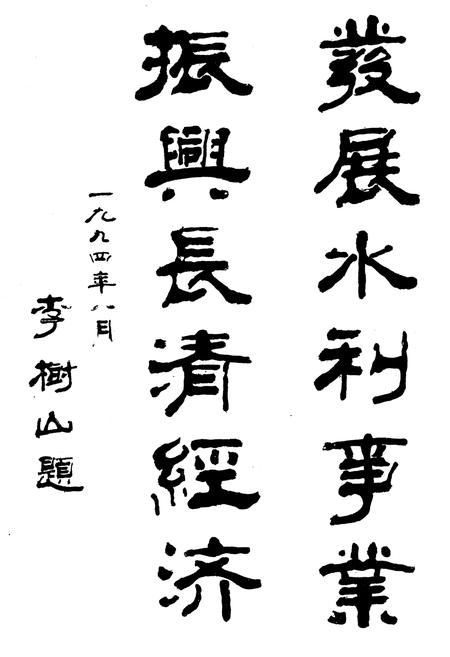 發展水利事業
振興長清經济
一九九四年八月
李樹山題